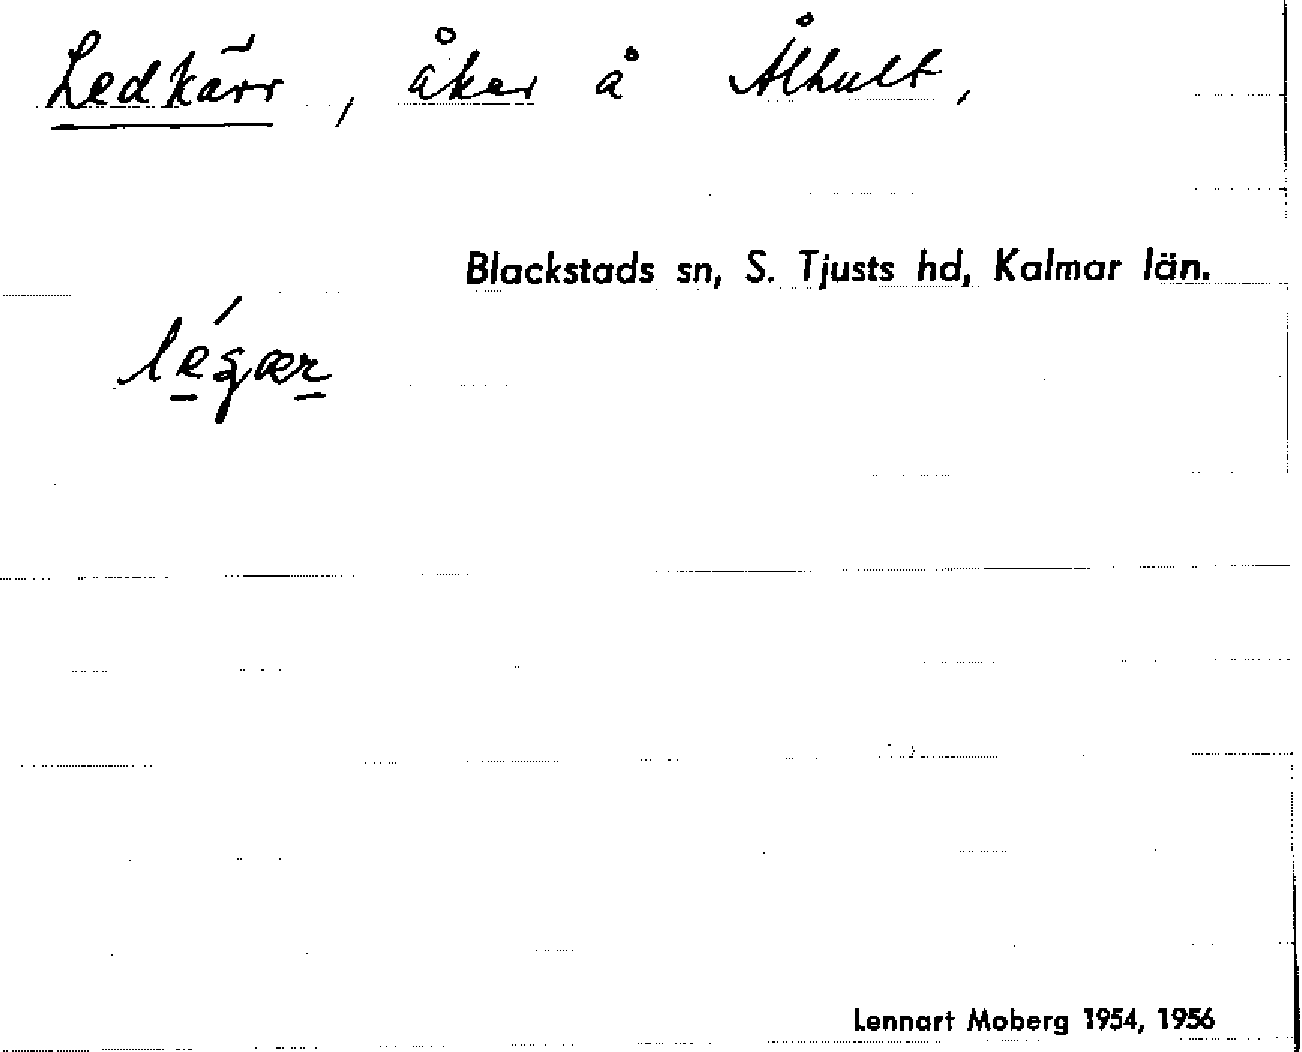 Ledkärr, åker å Ålhult,
Blackstads sn, S. Tjusts hd, Kalmar län.
Lennart Moberg 1954, 1956